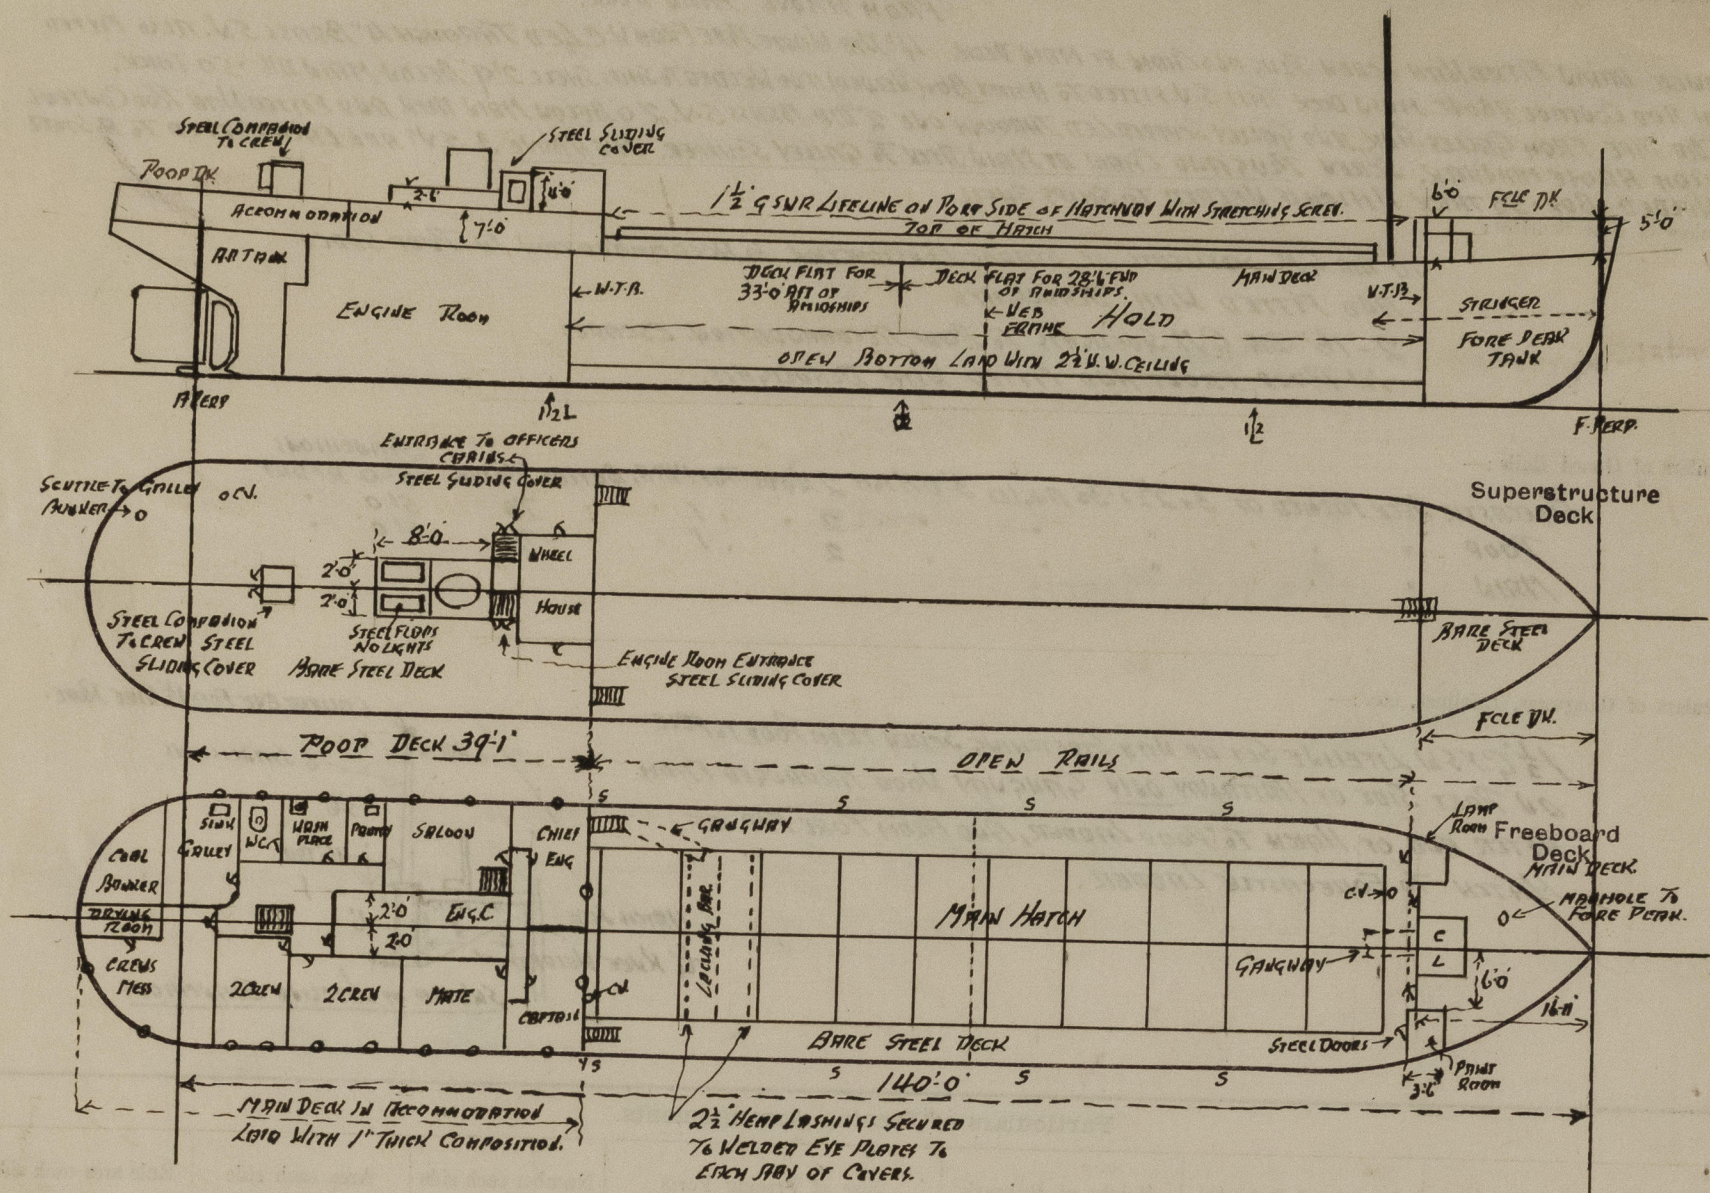 STEEL COMPANION
TO CREW
STEEL SLIDING
COVER
POOP DK.
2'-6"
4'-0"
ACCOMMODATION
7'-0"
1½" G SWR LIFELINE ON PORT SIDE OF HATCHWAY WITH STRETCHING SCREW.
TOP OF HATCH
6'-0"
FCLE DK
5'-0"
AP TANK
ENGINE ROOM
W.T.B.
DECK FLAT FOR
33'-0" AFT OF
AMIDSHIPS
DECK FLAT FOR 28'-6" FWD
OF AMIDSHIPS.
MAIN DECK
W.T.B.
WEB
FRAME
HOLD
STRINGER
FORE PEAK
TANK
OPEN BOTTOM LAID WITH 2½" W.W. CEILING
A PERP
½ L
½ L
F. PERP.
ENTRANCE TO OFFICERS
CABINS
STEEL SLIDING COVER
SCUTTLE TO GALLEY
BUNKER
C.V.
8'-0"
2'-0"
2'-0"
WHEEL
HOUSE
Superstructure
Deck
STEEL COMPANION
TO CREW STEEL
SLIDING COVER
STEEL FLAPS
NO LIGHTS
BARE STEEL DECK
ENGINE ROOM ENTRANCE
STEEL SLIDING COVER
BARE STEEL
DECK
FCLE DK.
POOP DECK 39'-1"
OPEN RAILS
S
S
S
S
SINK
GALLEY
W.C.
WASH
PLACE
PANTRY
SALOON
CHIEF
ENG
GANGWAY
LAMP
ROOM
Freeboard
Deck
MAIN DECK.
COAL
BUNKER
DRYING
ROOM
2'-0"
2'-0"
ENG. C
LOCKING BAR
MAIN HATCH
C.V.
MANHOLE TO
FORE PEAK.
C
L
GANGWAY
6'-0"
CREWS
MESS
2 CREW
2 CREW
MATE
CAPTAIN
C.V.
16'-11"
BARE STEEL DECK
STEEL DOORS
PAINT
ROOM
3'-6"
S
S
S
S
140'-0"
MAIN DECK IN ACCOMMODATION
LAID WITH 1" THICK COMPOSITION.
2½" HEMP LASHINGS SECURED
TO WELDED EYE PLATES TO
EACH BAY OF COVERS.